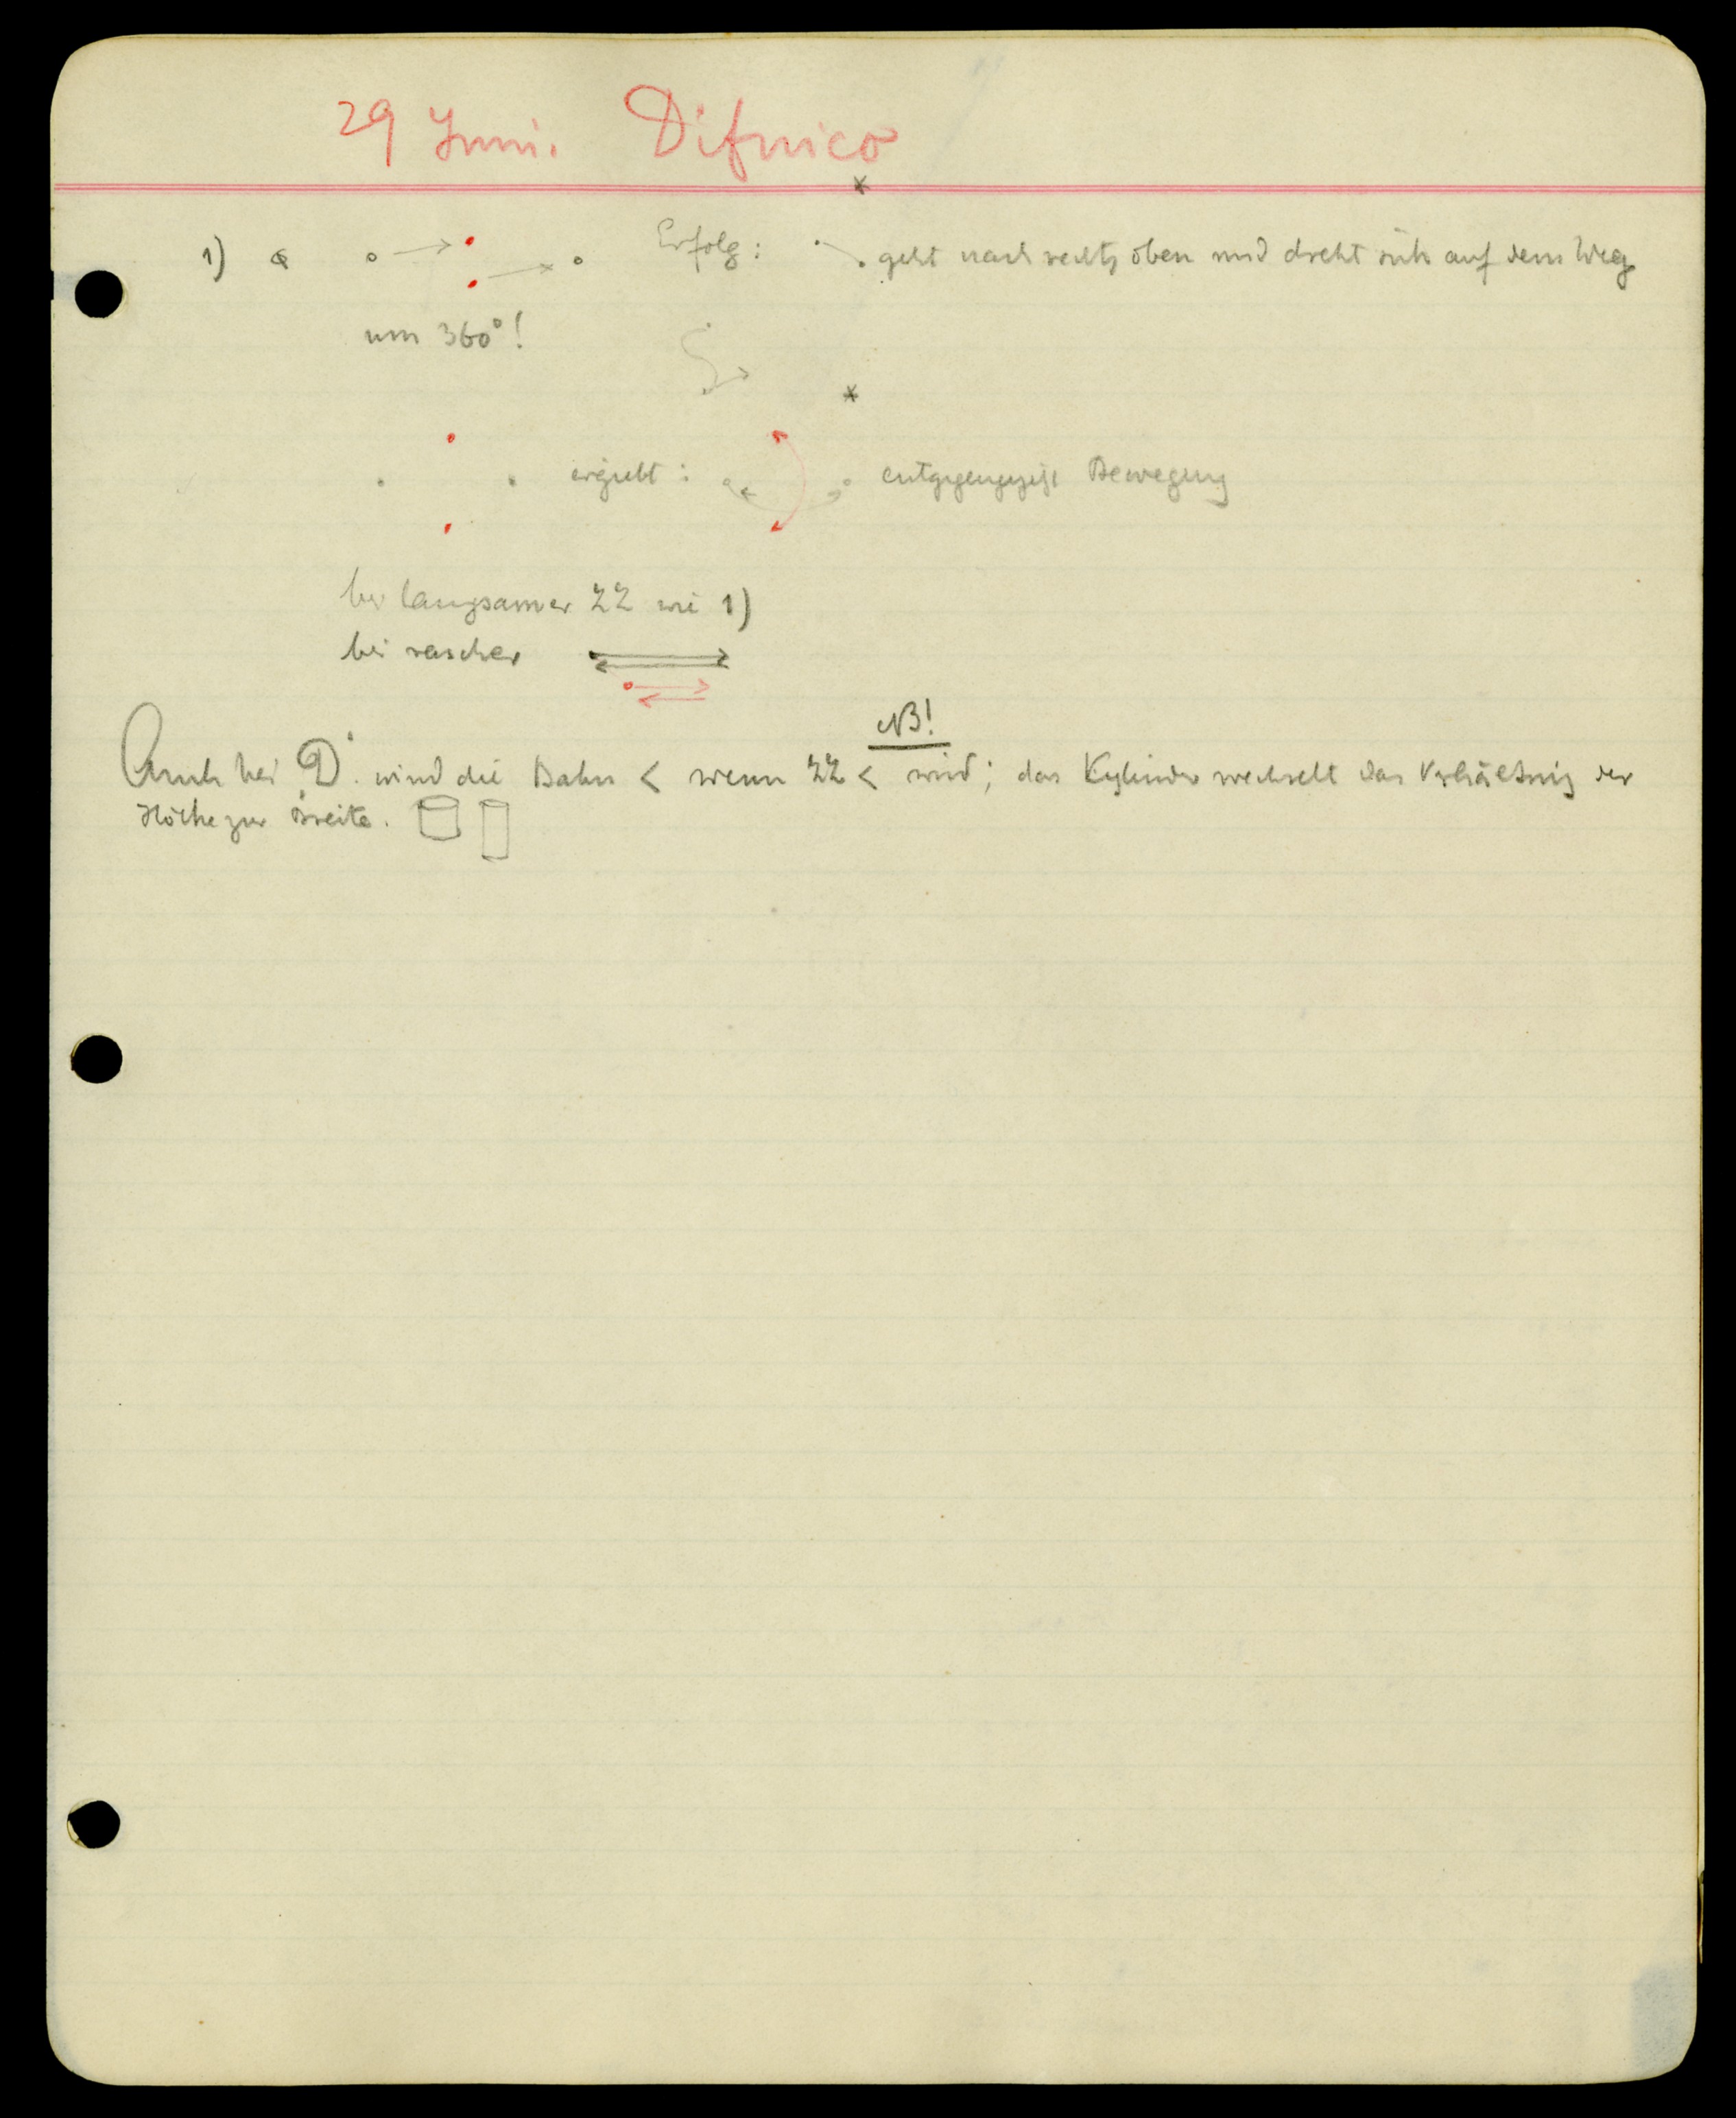 29 Juni. Difnico
1) Erfolg: geht nach rechts oben und dreht sich auf dem Weg
um 360°!
ergiebt: Bewegung
bei langsamer ZZ wie 1)
bei rascher
NB!
Auch bei D. wird die Bahn < wenn ZZ < wird; das Kylinder wechselt das Verhältnis der
Höhe zur Breite.